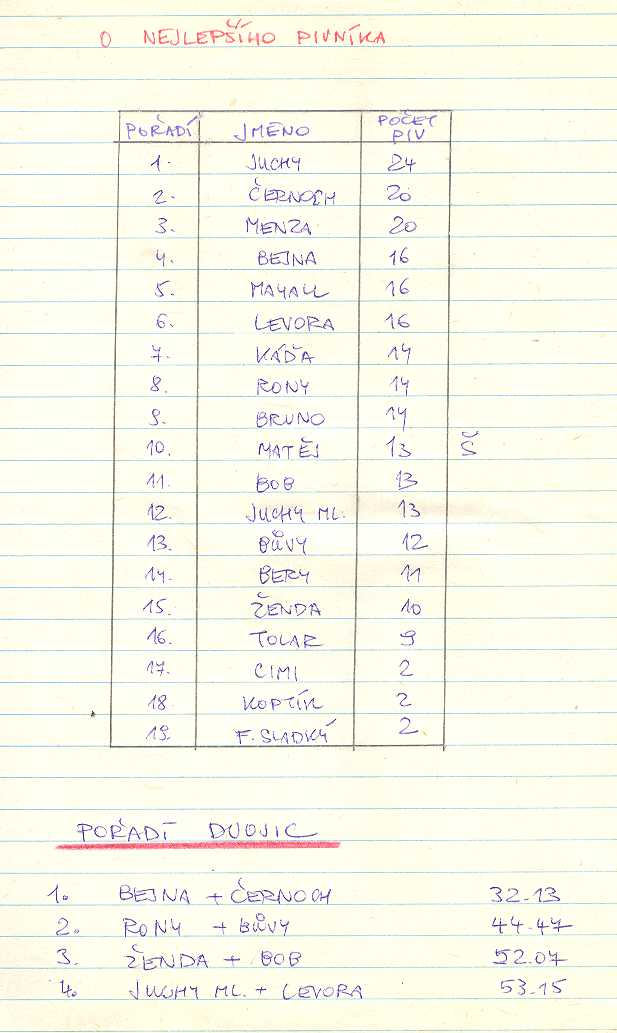 O NEJLEPŠÍHO PIVNÍKA
POŘADÍ JMÉNO POČET PIV
1. JUCHY 24
2. ČERNOCH 20
3. MENZA 20
4. BEJNA 16
5. MAYALL 16
6. LEVORA 16
7. KÁĎA 14
8. RONY 14
9. BRUNO 14
10. MATĚJ 13 Š
11. BOB 13
12. JUCHY ML. 13
13. BŮVY 12
14. BERY 11
15. ŽENDA 10
16. TOLAR 9
17. CIMI 2
18 KOPTÍK 2
19. F. SLADKÝ 2
POŘADÍ DVOJIC
1. BEJNA + ČERNOCH 32.13
2. RONY + BŮVY 44.47
3. ŽENDA + BOB 52.07
4. JUCHY ML. + LEVORA 53.15